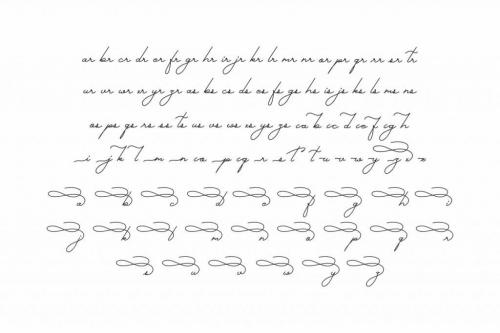 ar br cr dr er fr gr hr ir jr kr lr mr nr or pr qr rr sr tr
ur vr wr xr yr zr as bs cs ds es fs gs hs is js ks ls ms ns
os ps qs rs ss ts us vs ws xs ys zs
i j k l m n o p q r s t u v w y z
a b c d e f g h i
j k l m n o p q r
s u v w y z